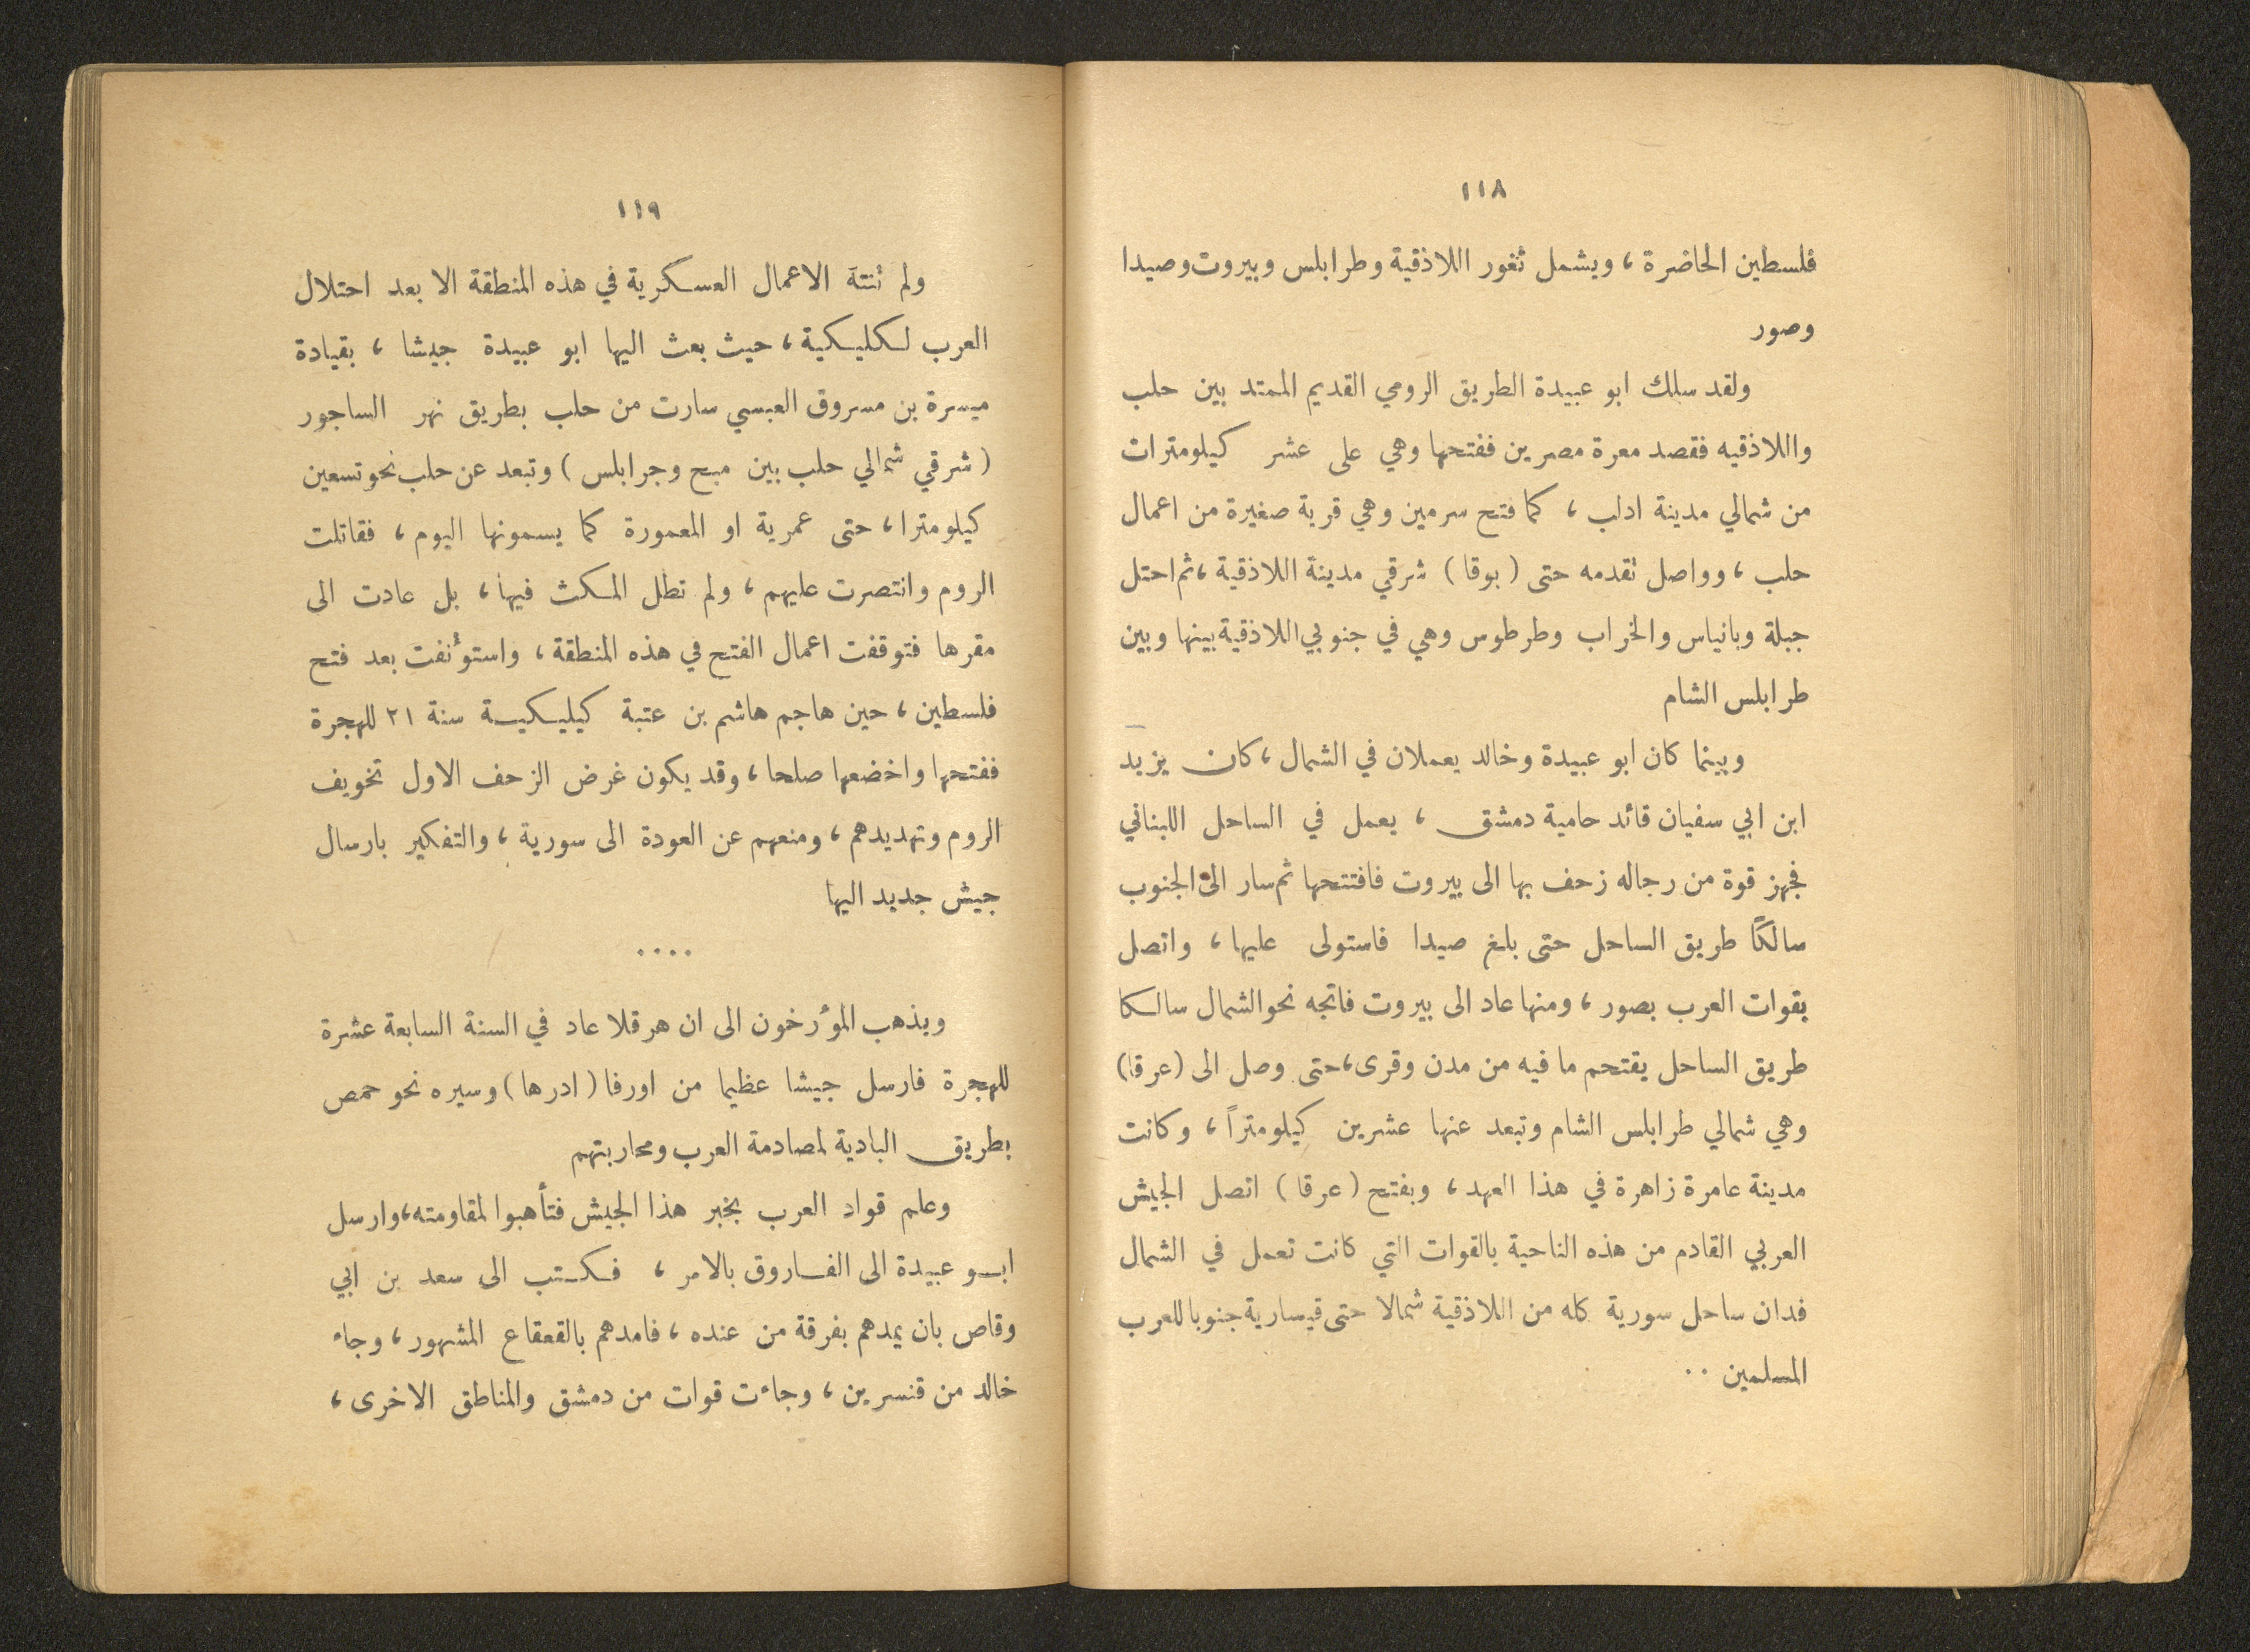 ١١٨
فلسطين الحاضرة ، ويشمل ثغور اللاذقية وطرابلس وبيروت وصيدا
وصور
ولقد سلك ابو عبيدة الطريق الرومي القديم الممتد بين حلب
واللاذقيه فقصد معرة مصرين ففتحها وهي على عشر كيلومترات
من شمالي مدينة ادلب ، كما فتح سرمين وهي قرية صغيرة من اعمال
حلب ، وواصل تقدمه حتى ( بوقا ) شرقي مدينة اللاذقية ، ثم احتل
جبلة وبانياس والخراب وطرطوس وهي في جنوبي اللاذقية بينها وبين
طرابلس الشام
وبينما كان ابو عبيدة وخالد يعملان في الشمال ، كان يزيد
ابن ابي سفيان قائد حامية دمشق ، يعمل في الساحل اللبناني
فجهز قوة من رجاله زحف بها الى بيروت فافتتحها ثم سار الى الجنوب
سالكاً طريق الساحل حتى بلغ صيدا فاستولى عليها ، واتصل
بقوات العرب بصور ، ومنها عاد الى بيروت فاتجه نحو الشمال سالكا
طريق الساحل يقتحم ما فيه من مدن وقرى ، حتى وصل الى (عرقا)
وهي شمالي طرابلس الشام وتبعد عنها عشرين كيلومتراً ، وكانت
مدينة عامرة زاهرة في هذا العهد ، وبفتح ( عرقا ) اتصل الجيش
العربي القادم من هذه الناحية بالقوات التي كانت تعمل في الشمال
فدان ساحل سورية كله من اللاذقية شمالا حتى قيسارية جنوبا للعرب
المسلمين ..
١١٩
ولم تنته الاعمال العسكرية في هذه المنطقة الا بعد احتلال
العرب لكليكية ، حيث بعث اليها ابو عبيدة جيشا ، بقيادة
ميسرة بن مسروق العبسي سارت من حلب بطريق نهر الساجور
( شرقي شمالي حلب بين مبج وجرابلس ) وتبعد عن حلب نحو تسعين
كيلومترا ، حتى عمرية او المعمورة كما يسمونها اليوم ، فقاتلت
الروم وانتصرت عليهم ، ولم تطل المكث فيها ، بل عادت الى
مقرها فتوقفت اعمال الفتح في هذه المنطقة ، واستؤنفت بعد فتح
فلسطين ، حين هاجم هاشم بن عتبة كيليكية سنة ٢١ للهجرة
ففتحها واخضعها صلحا ، وقد يكون غرض الزحف الاول تخويف
الروم وتهديدهم ، ومنعهم عن العودة الى سورية ، والتفكير بارسال
جيش جديد اليها
....
ويذهب المؤرخون الى ان هرقلا عاد في السنة السابعة عشرة
للهجرة فارسل جيشا عظيما من اورفا ( ادرها ) وسيره نحو حمص
بطريق البادية لمصادمة العرب ومحاربتهم
وعلم قواد العرب بخبر هذا الجيش فتأهبوا لمقاومته ، وارسل
ابو عبيدة الى الفاروق بالامر ، فكتب الى سعد بن ابي
وقاص بان يمدهم بفرقة من عنده ، فامدهم بالقعقاع المشهور ، وجاء
خالد من قنسرين ، وجاءت قوات من دمشق والمناطق الاخرى ،